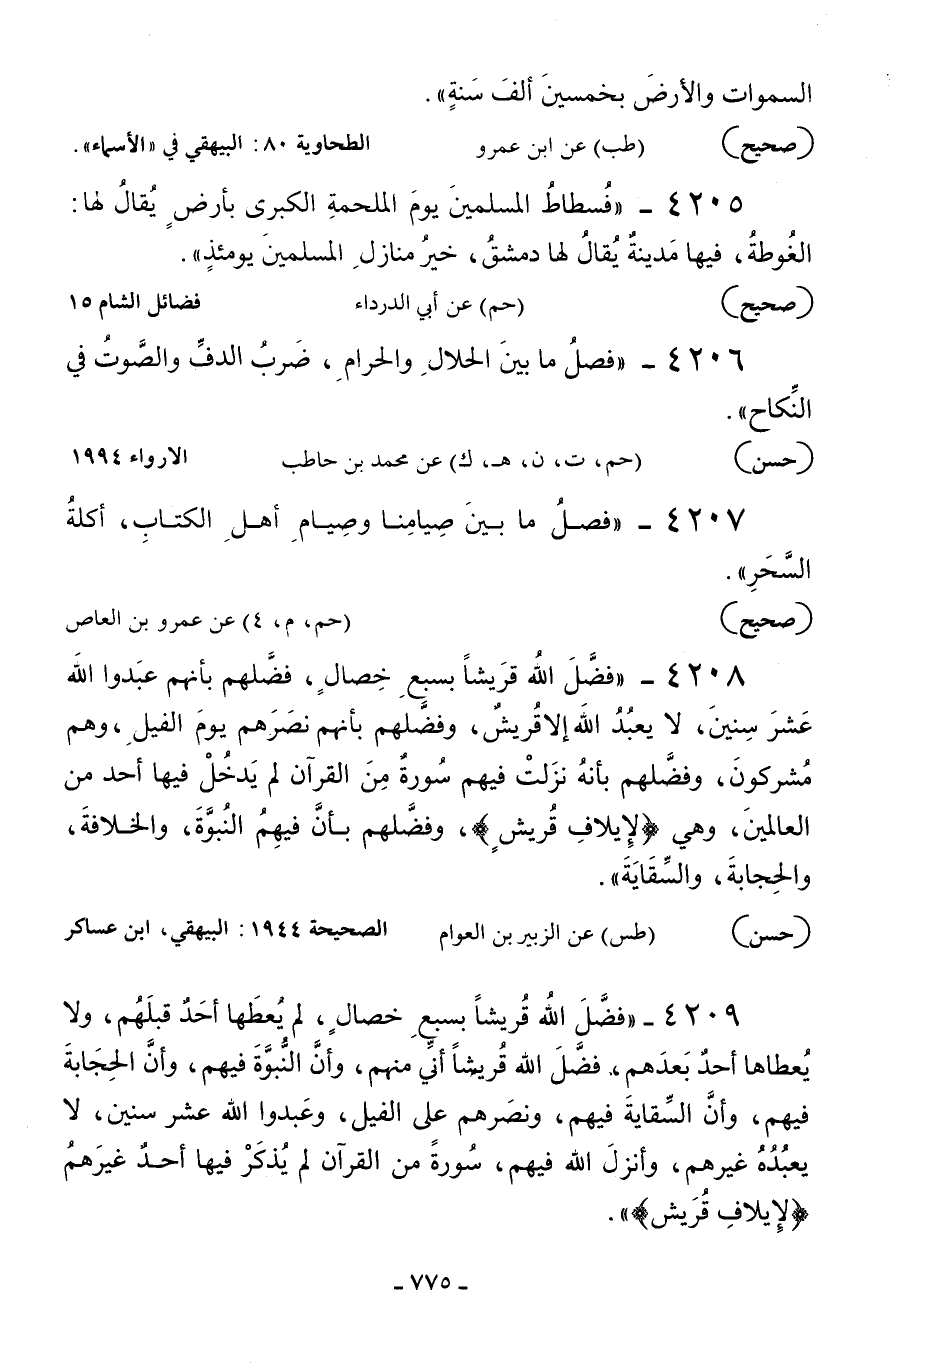 السموات والأرضَ بخمسينَ ألفَ سَنةٍ».
(صحيح) (طب) عن ابن عمرو الطحاوية ٨٠: البيهقي في «الأسماء».
٤٢٠٥ ـ «فُسطاطُ المسلمينَ يومَ الملحمةِ الكبرى بأرضٍ يُقالُ لها:
الغُوطةُ، فيها مَدينةٌ يُقالُ لها دمشقُ، خيرُ منازلِ المسلمينَ يومئذٍ».
(صحيح) (حم) عن أبي الدرداء فضائل الشام ١٥
٤٢٠٦ ـ «فصلُ ما بينَ الحلالِ والحرامِ، ضَربُ الدفِّ والصَّوتُ في
النِّكاح».
(حسن) (حم، ت، ن، هـ، ك) عن محمد بن حاطب الارواء ١٩٩٤
٤٢٠٧ ـ «فصلُ ما بينَ صِيامِنا وصِيامِ أهلِ الكتابِ، أكلةُ
السَّحَرِ».
(صحيح) (حم، م، ٤) عن عمرو بن العاص
٤٢٠٨ ـ «فضَّلَ اللهُ قرَيشاً بسبعِ خِصالٍ، فضَّلهم بأنهم عبَدوا اللهَ
عَشرَ سِنينَ، لا يعبُدُ اللهَ إلا قُريشٌ، وفضَّلهم بأنهم نصَرَهم يومَ الفيلِ، وهم
مُشركونَ، وفضَّلهم بأنهُ نزَلتْ فيهم سُورةٌ مِنَ القرآن لم يَدخُلْ فيها أحد من
العالمينَ، وهي ﴿لإِيلافِ قُريشٍ﴾، وفضَّلهم بأنَّ فيهِمُ النُبوَّةَ، والخلافةَ،
والحِجابةَ، والسِّقَايَةَ».
(حسن) (طس) عن الزبير بن العوام الصحيحة ١٩٤٤: البيهقي، ابن عساكر
٤٢٠٩ ـ «فضَّلَ اللهُ قُريشاً بسبعِ خصالٍ، لم يُعطَها أحَدٌ قبلَهُم، ولا
يُعطاها أحدٌ بَعدَهم، فضَّلَ الله قُريشاً أنِّي منهم، وأنَّ النُّبوَّةَ فيهم، وأنَّ الحِجَابةَ
فيهم، وأنَّ السِّقايةَ فيهم، ونصَرهم على الفيل، وعَبدوا الله عشر سنين، لا
يعبُدُهُ غيرهم، وأنزلَ الله فيهم، سُورةً من القرآن لم يُذكَرْ فيها أحدٌ غيَرَهمُ
﴿لإِيلافِ قُرَيش﴾».
ـ ٧٧٥ ـ